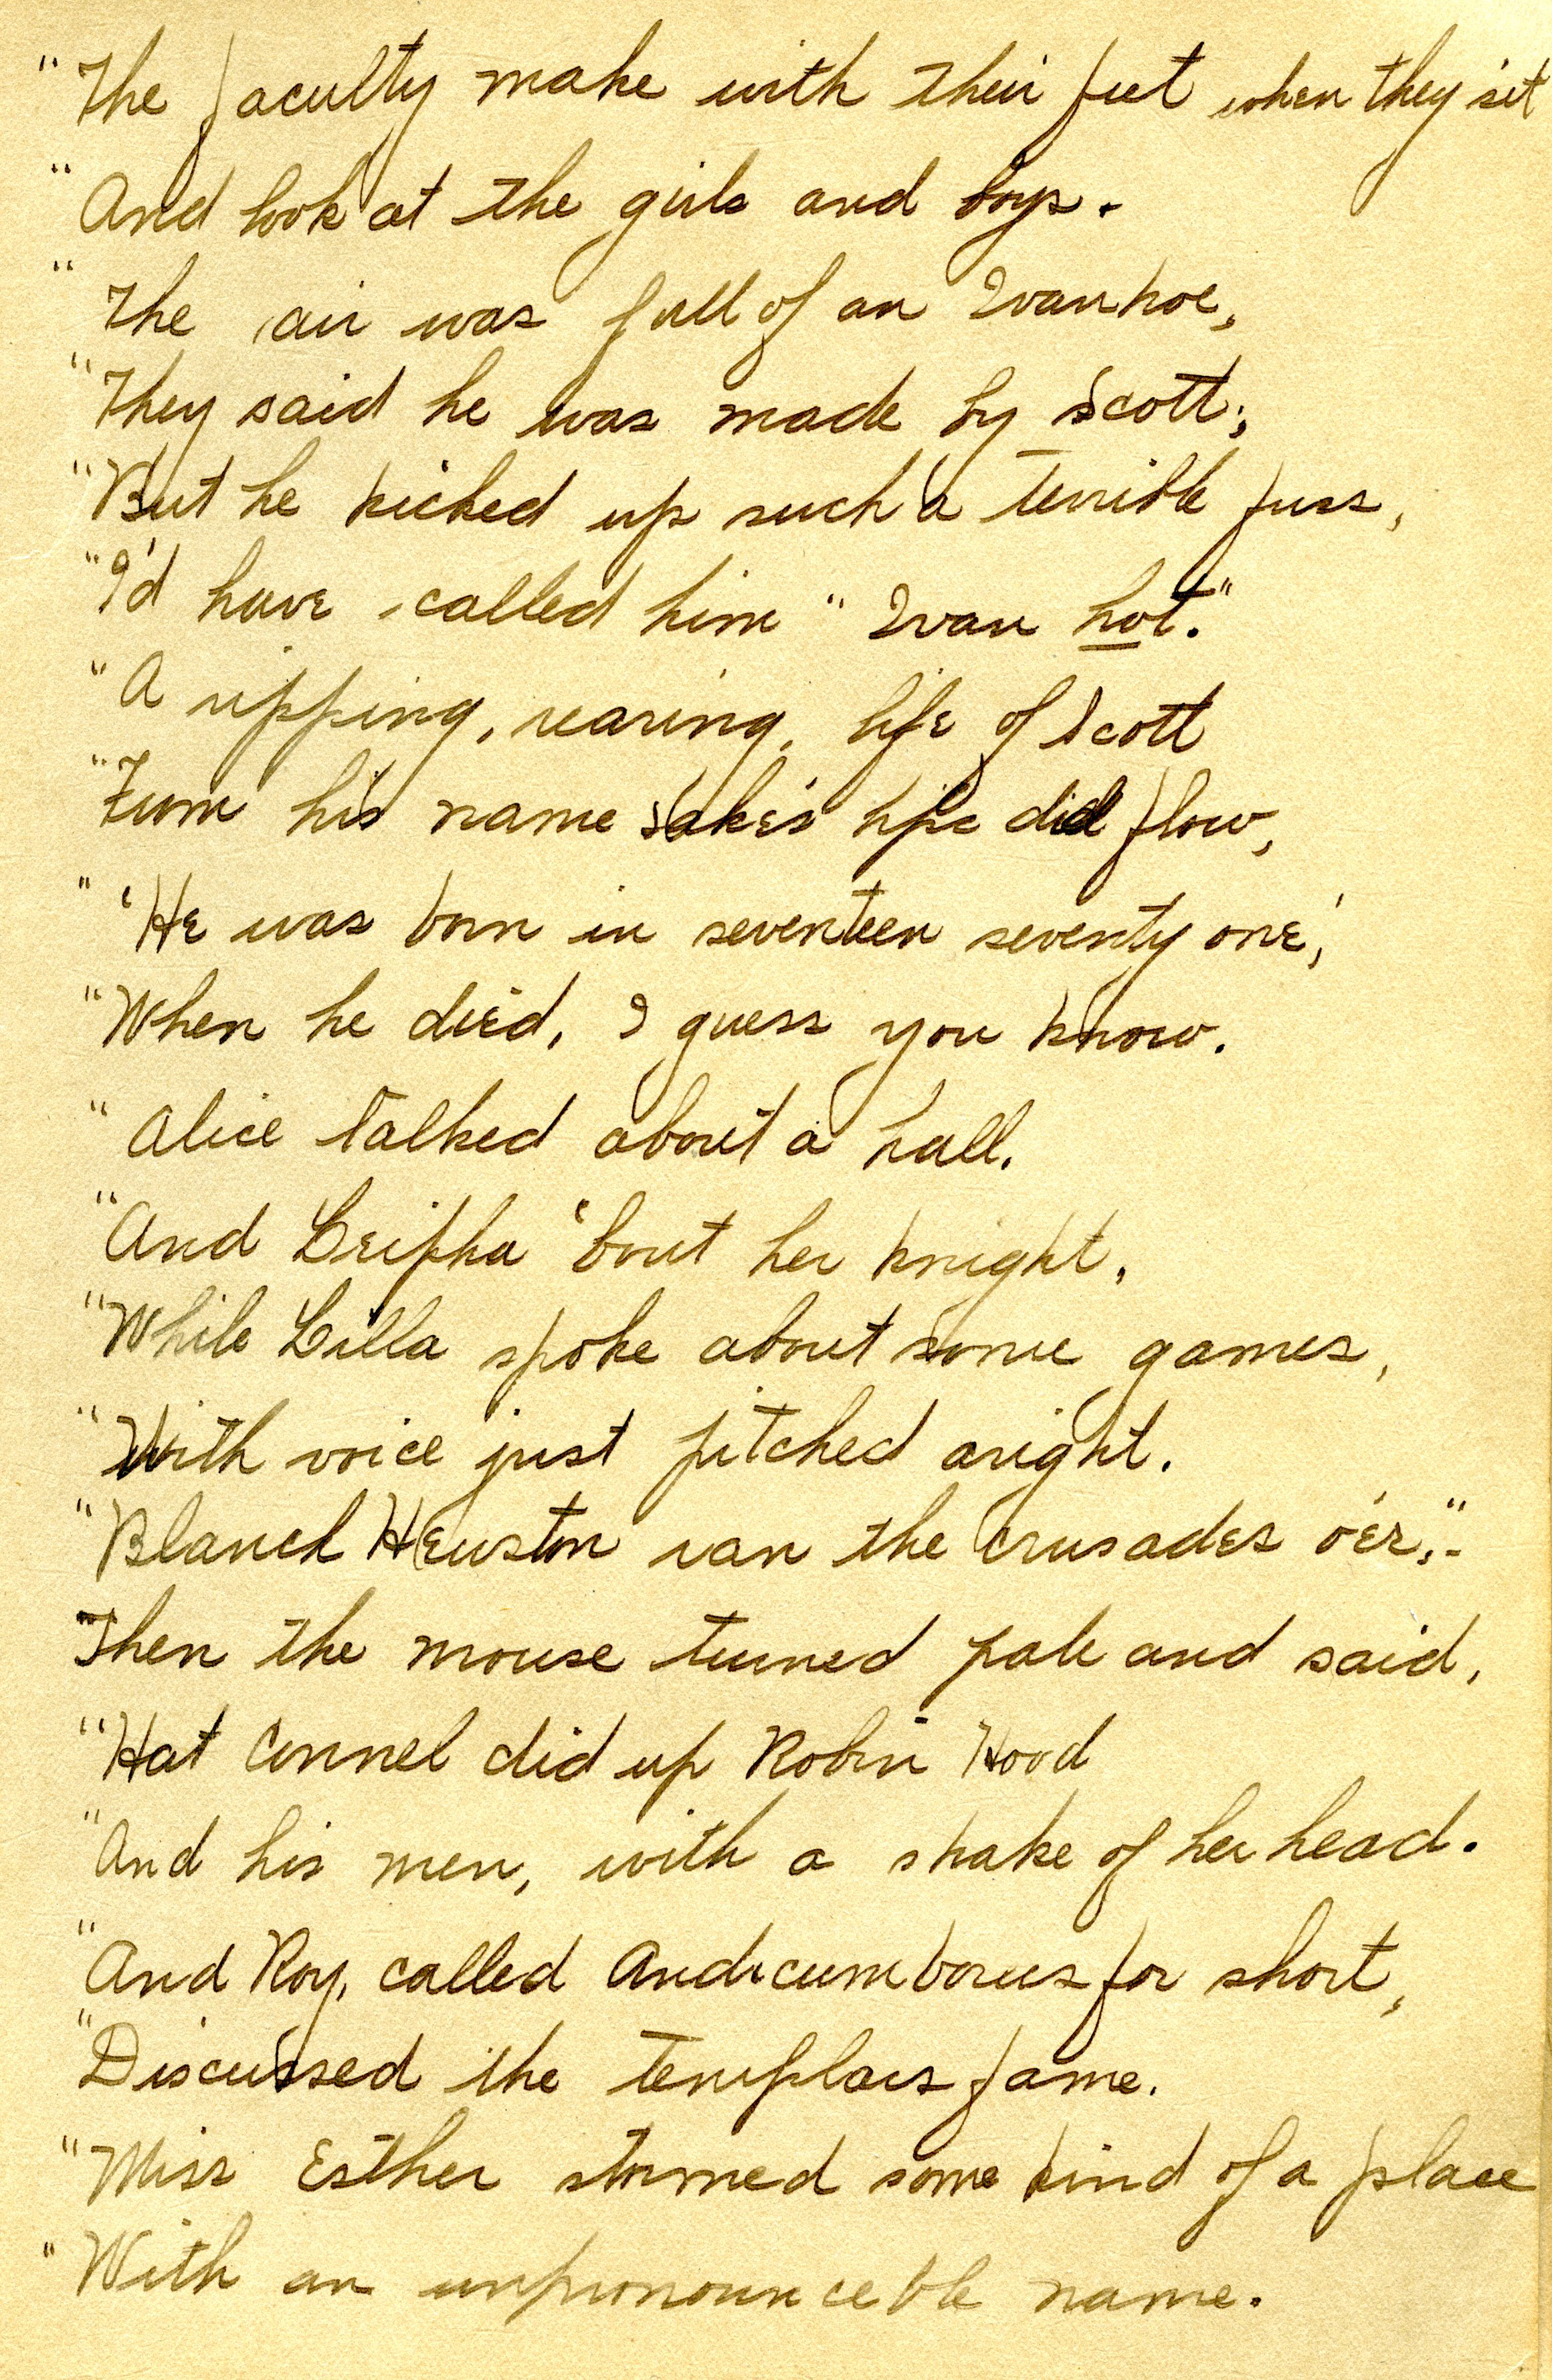 "The faculty make with their feet when they sit
"And look at the girls and boys.
"The air was full of an Ivanhoe,
"They said he was made by Scott;
"But he kicked up such a terrible fuss,
"I'd have called him "Ivan hot."
"A ripping, rearing, life of Scott
"From his name sake's lips did flow,
"'He was born in seventeen seventy one,'
"When he died, I guess you know.
"Alice talked about a hall.
"And about her knight,
"While Lilla spoke about some games,
"With voice just pitched aright.
"Blanch Heuston ran the crusades o'er,"-
Then the mouse turned pale and said,
"Hat Connel did up Robin Hood
"And his men, with a shake of her head.
"And Roy, called for short,
"Discussed the templars fame.
"Miss Esther stormed some kind of a place
"With an unpronounceble name.